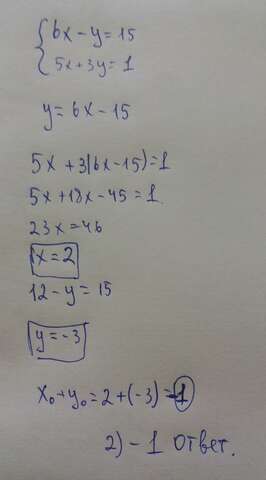 {6x - y = 15
5x + 3y = 1
y = 6x - 15
5x + 3(6x - 15) = 1
5x + 18x - 45 = 1
23x = 46
x = 2
12 - y = 15
y = -3
x₀ + y₀ = 2 + (-3) = -1
2) - 1 ответ.